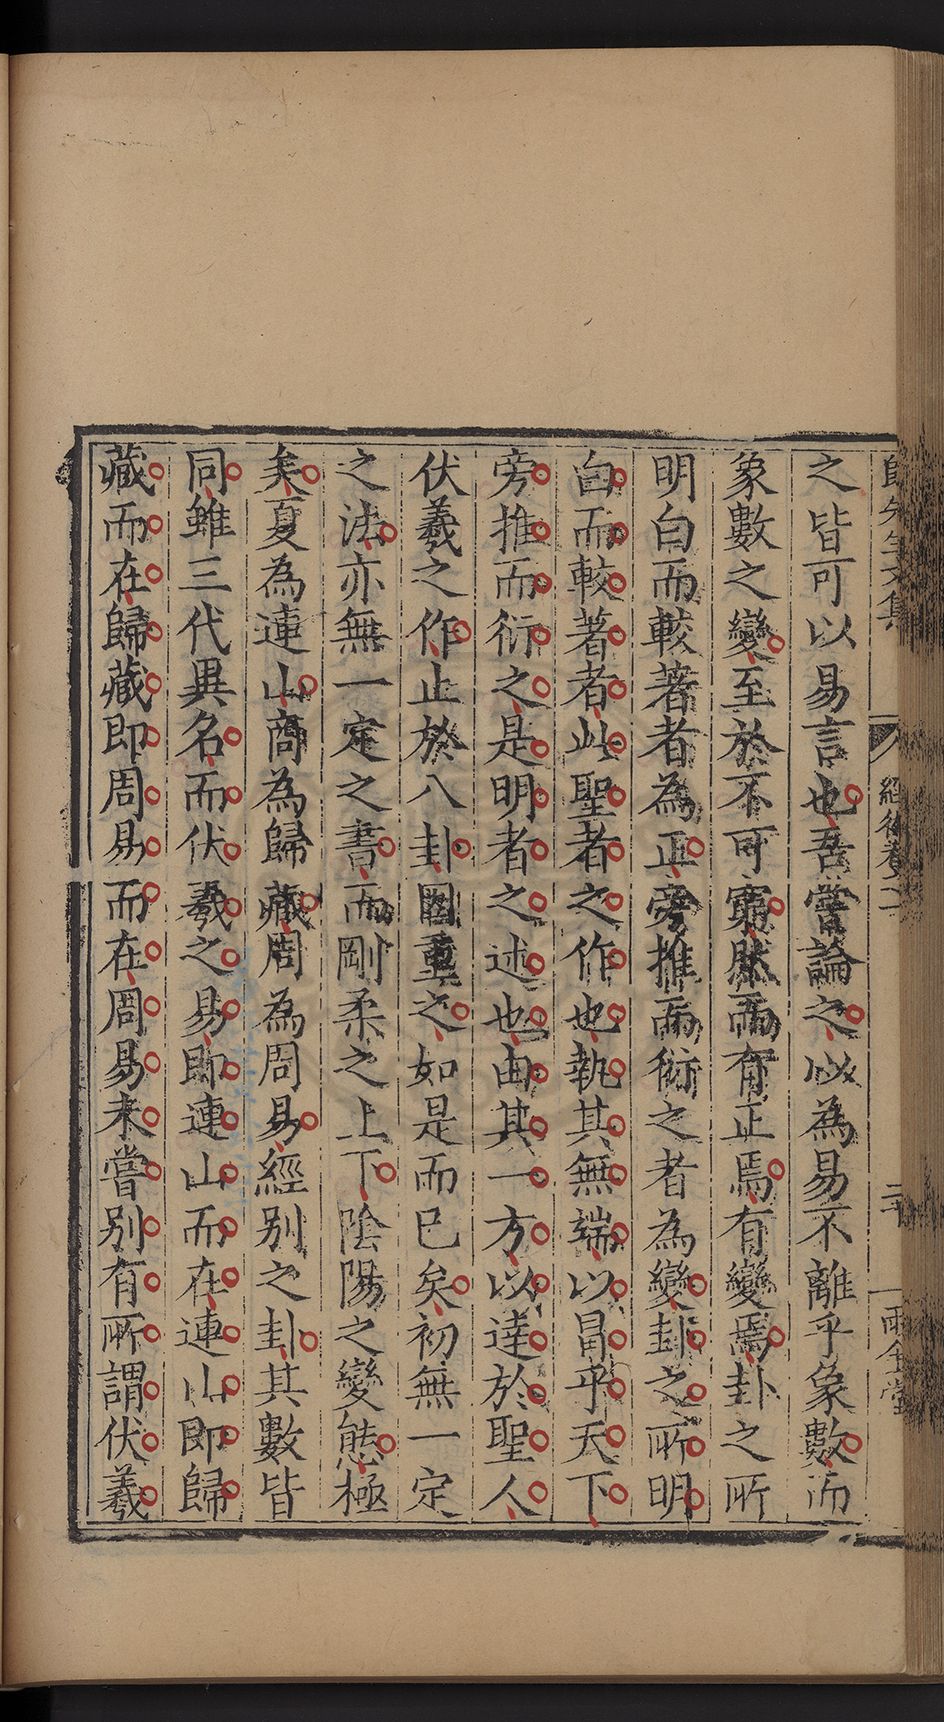 之皆可以易言也吾嘗論之以為易不離乎象數而
象數之變至於不可窮然而有正焉有變焉卦之所
明白而較著者為正旁推而衍之者為變卦之所明
白而較著者此聖者之作也執其無端以冒乎天下
旁推而衍之是明者之述也由其一方以達於聖人
伏羲之作止於八卦因重之如是而已矣初無一定
之法亦無一定之書而剛柔之上下陰陽之變態極
矣夏為連山商為歸藏周為周易經別之卦其數皆
同雖三代異名而伏羲之易即連山而在連山即歸
藏而在歸藏即周易而在周易未嘗別有所謂伏羲